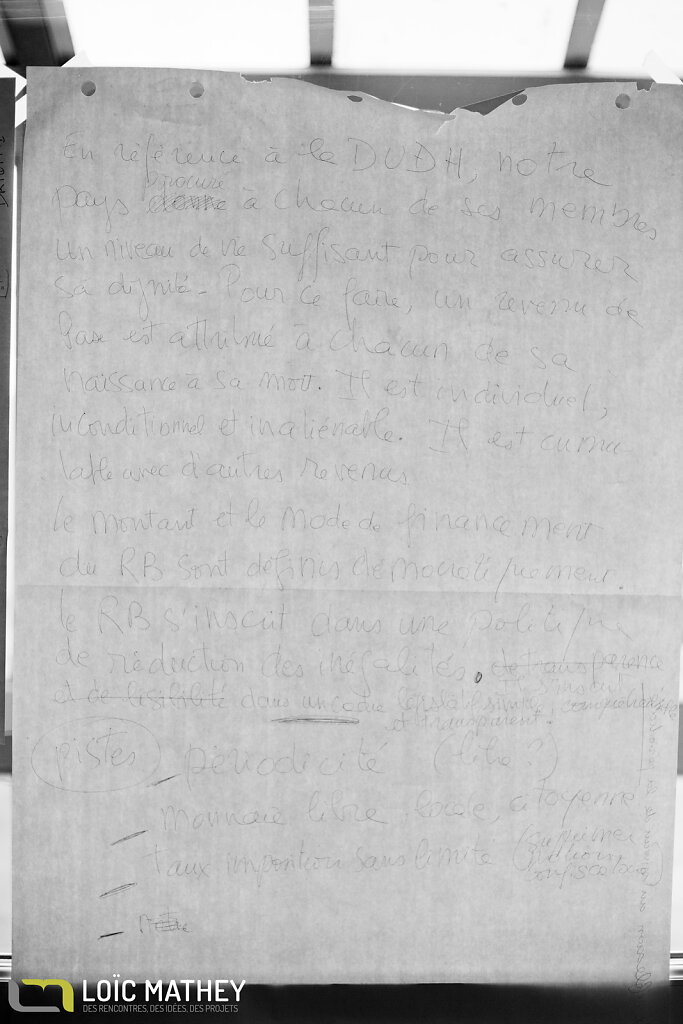 En référence à la DUDH, notre
procure
pays donne à chacun de ses membres
un niveau de vie suffisant pour assurer
sa dignité. Pour ce faire, un revenu de
base est attribué à chacun de sa
naissance à sa mort. Il est individuel,
inconditionnel et inaliénable. Il est cumu
lable avec d'autres revenus
Le montant et le mode de financement
du RB sont définis démocratiquement.
Le RB s'inscrit dans une politique
de réduction des inégalités. de transparence
Il s'inscrit
et de lisibilité dans un cadre législatif simple, compréhensible
et transparent.
pistes
périodicité (libre ?)
monnaie libre, locale, citoyenne
taux imposition sans limite (supprimer
LOÏC MATHEY
DES RENCONTRES, DES IDÉES, DES PROJETS